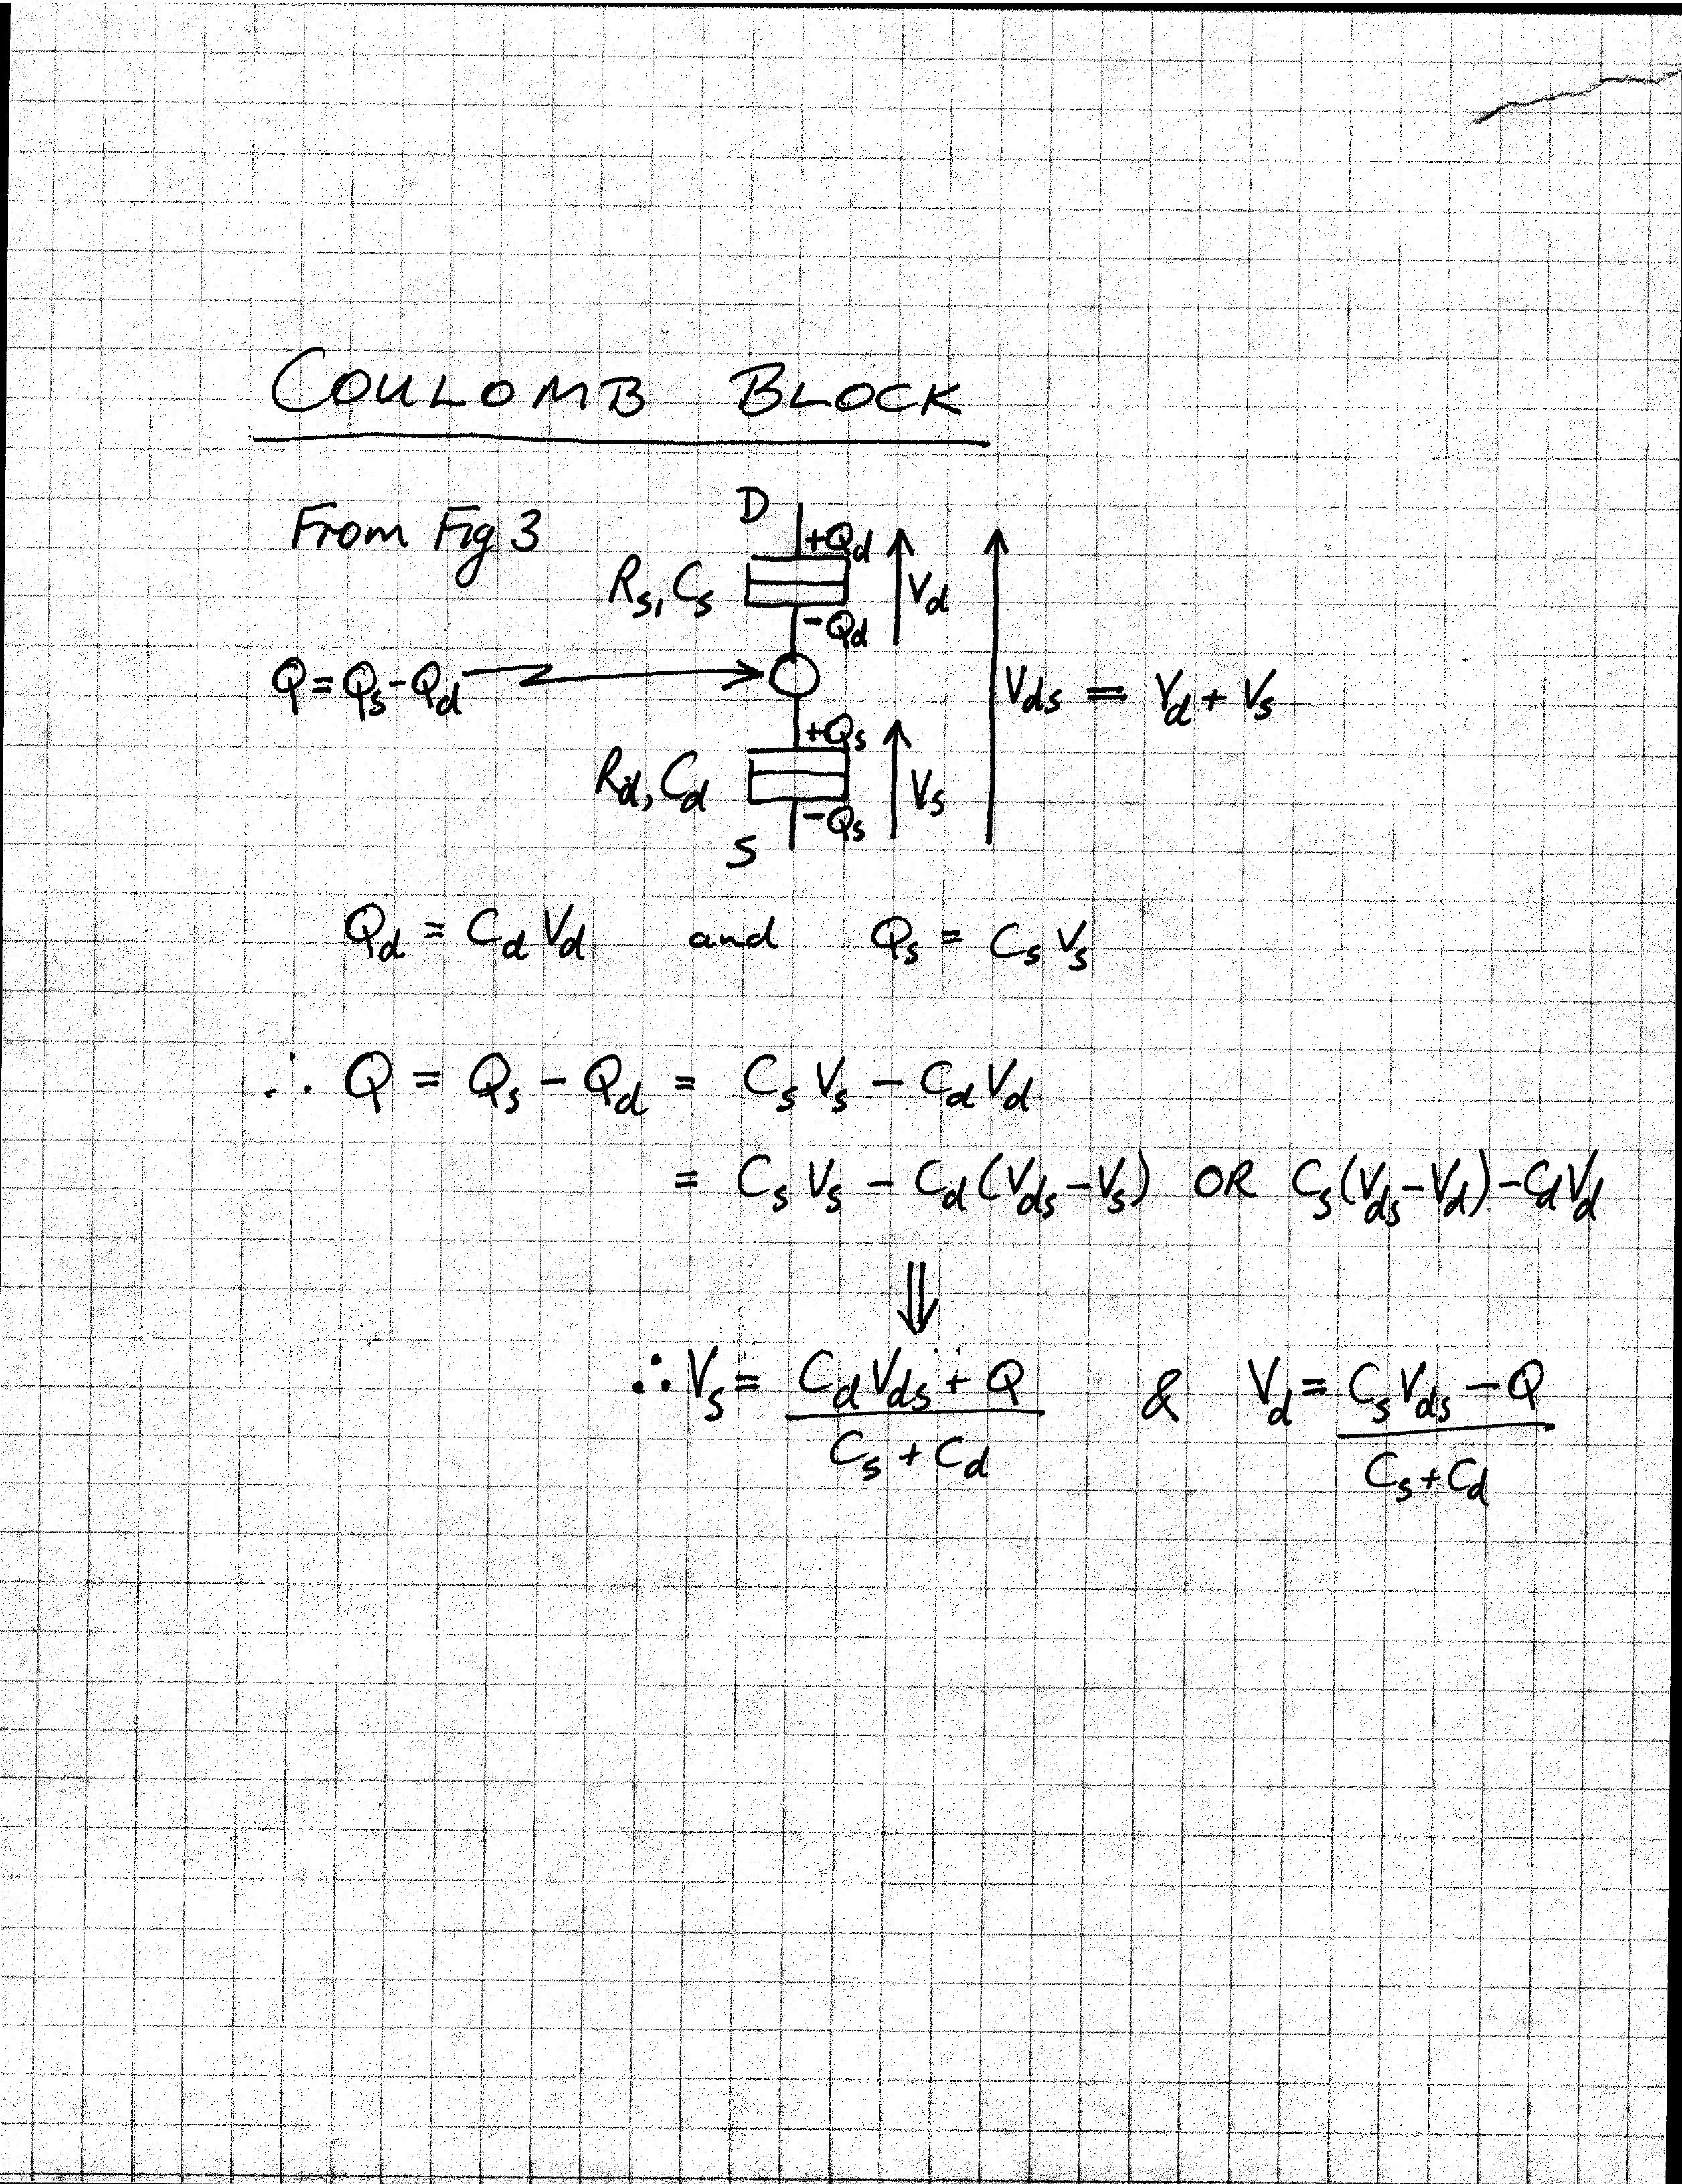 COULOMB BLOCK
From Fig 3
D
+Qd
Rs, Cs
Vd
-Qd
Q = Qs - Qd
Vds = Vd + Vs
+Qs
Rd, Cd
Vs
-Qs
S
Qd = Cd Vd and Qs = Cs Vs
∴ Q = Qs - Qd = Cs Vs - Cd Vd
= Cs Vs - Cd (Vds - Vs) OR Cs (Vds - Vd) - Cd Vd
⇓
∴ Vs = Cd Vds + Q & Vd = Cs Vds - Q
Cs + Cd Cs + Cd